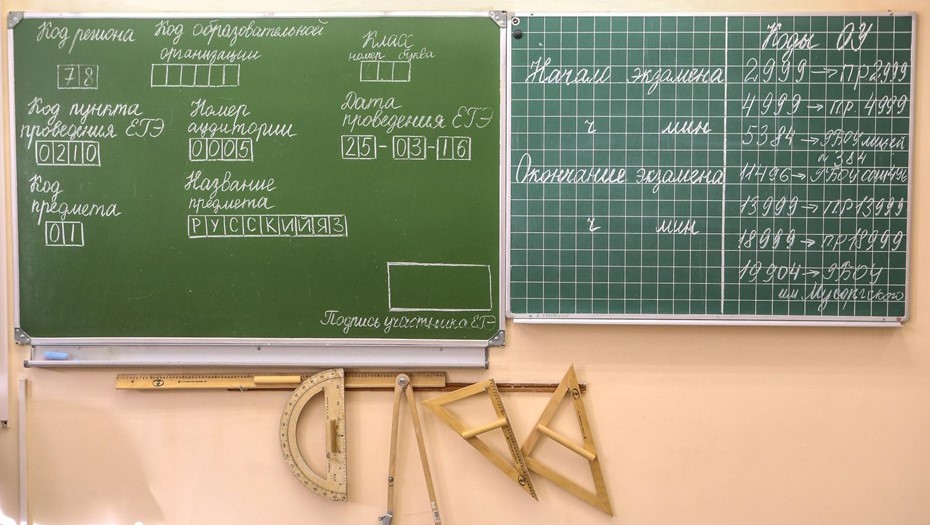 Код региона
78
Код образовательной
организации
Класс
номер буква
Код пункта
проведения ЕГЭ
0210
Номер
аудитории
0005
Дата
проведения ЕГЭ
25-03-16
Код
предмета
01
Название
предмета
РУССКИЙЯЗ
Подпись участника ЕГЭ
Начало экзамена
ч мин
Окончание экзамена
ч мин
Коды ОУ
2999→ПР2999
4999→ПР.4999
5384→ГБОУ лицей
№384
11496→ГБОУ сош496
13999→ПР13999
18999→ПР18999
19904→ГБОУ
им. Мусоргского